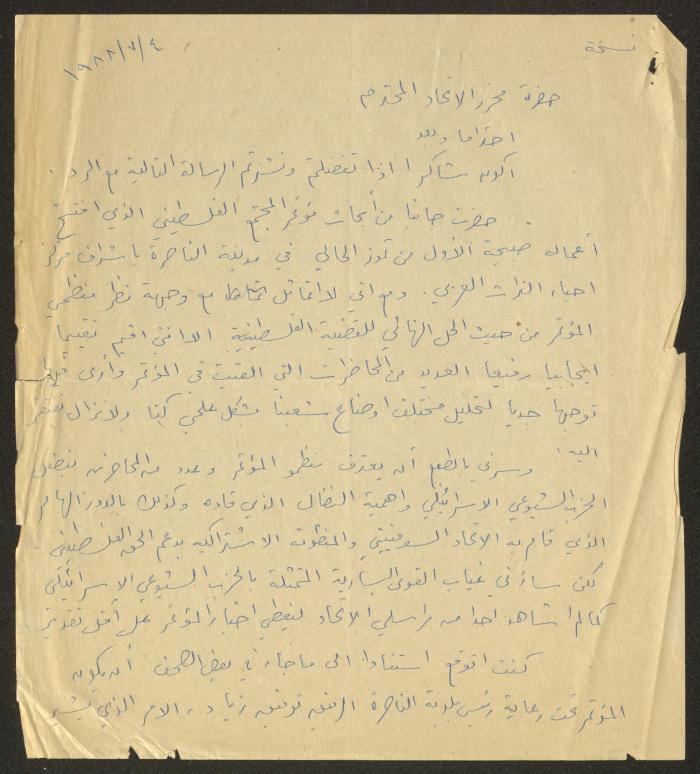 نسخة
١٩٨٨/٧/٤
حضرة محرر الاتحاد المحترم
احتراما وبعد
اكون شاكرا اذا تفضلتم ونشرتم الرسالة التالية مع الرد .
حضرت جانبا من أبحاث مؤتمر المجتمع الفلسطيني الذي افتتح
أعماله صبيحة الأول من تموز الحالي في مدينة الناصرة باشراف مركز
احياء التراث العربي . ومع اني لا اتماثل تماما مع وجهة نظر منظمي
المؤتمر من حيث الحل النهائي للقضية الفلسطينية الا انني اقيم تقييما
ايجابيا رفيعا العديد من المحاضرات التي القيت في المؤتمر وأرى فيها
توجها جديا لتحليل مختلف اوضاع شعبنا بشكل علمي كنا ولا نزال نفتقر
اليه .
وسرني بالطبع أن يعترف منظمو المؤتمر وعدد من المحاضرين بفضل
الحزب الشيوعي الاسرائيلي واهمية النضال الذي قاده وكذلك بالدور الهام
الذي قام به الاتحاد السوفييتي والمنظومة الاشتراكية بدعم الحق الفلسطيني .
لكن ساءني غياب القوى اليسارية المتمثلة بالحزب الشيوعي الاسرائيلي
كما لم اشاهد احدا من مراسلي الاتحاد ليغطي اخبار المؤتمر على أقل تقدير .
كنت اتوقع استنادا الى ما جاء في بعض الصحف أن يكون
المؤتمر تحت رعاية رئيس بلدية الناصرة الرفيق توفيق زياد ، الامر الذي